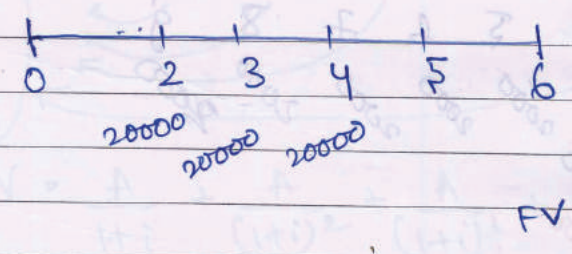 0 2 3 4 5 6
20000 20000 20000
FV